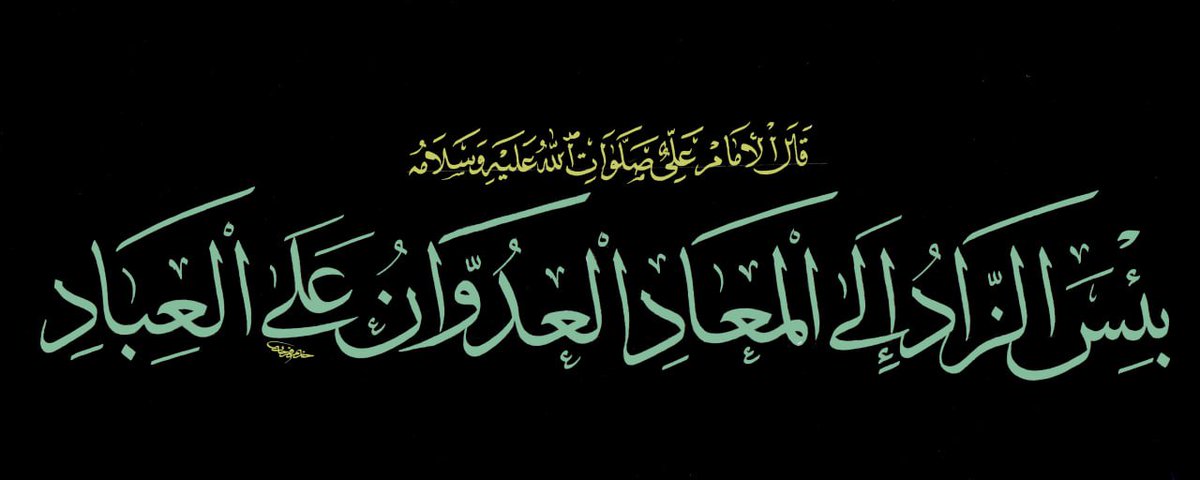 قَالَ الْأِمَامْ عَلِيٌّ صَلَّوَاتِ ٱللهُ عَلَيْهِ وَسَلَامُه
بِئْسَ الزَّادُ إِلَى الْمَعَادِ الْعُدْوَّانُ عَلَى الْعِبَادِ